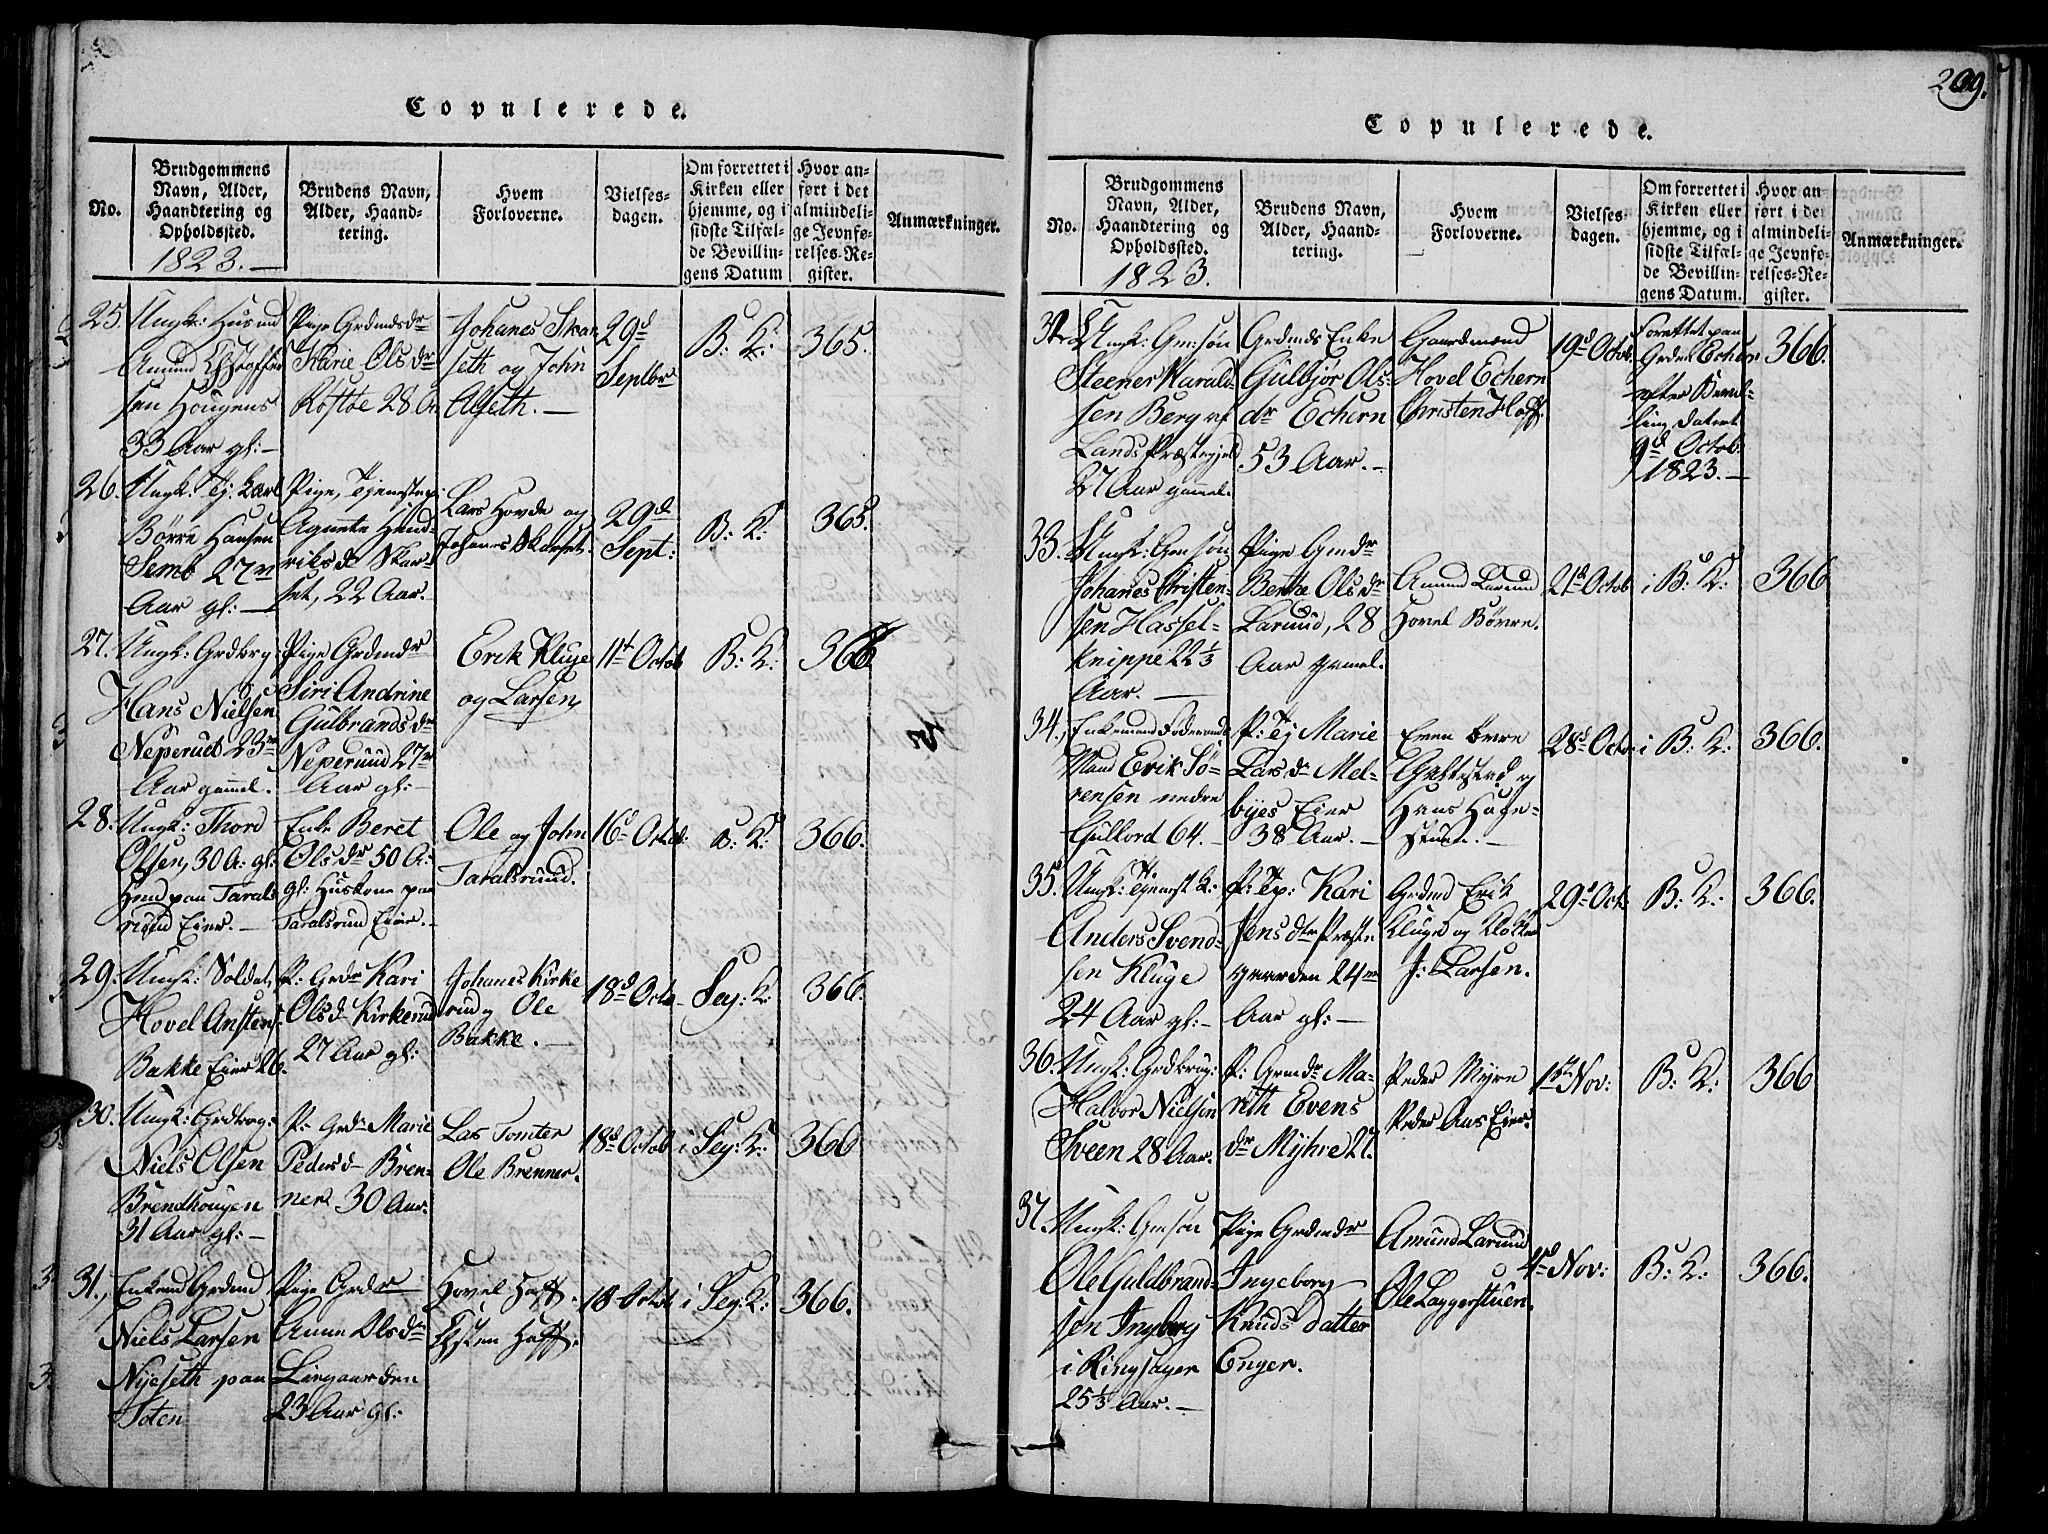 Copulerede.
No.
Brudgommens
Navn, Alder,
Haandtering og
Opholdssted.
1823.
Brudens Navn,
Alder, Haand-
tering.
Hvem
Forloverne.
Vielses-
dagen.
Om forrettet i
Kirken eller
hjemme, og i
sidste Tilfæl-
de Bevillin-
gens Datum
Hvor an-
ført i det
almindeli-
ge Jevnfø-
relses-Re-
gister.
Anmærkninger.
25. Ungk: Husmd
Amund
sen Hougens
33 Aar gl:
Pige Grdmdsdr
Karie Olsdr
Røstøe 28 A
Johanes Skar
seth og John
Alseth.
29d
Septbr
B: K:
365.
26. Ungk: Tj. karl
Börre Hansen
Semb 27
Aar gl:
Pige, Tjenestep:
Agnete Hend-
riksdr Skar-
set, 22 Aar.
Lars Hovde og
Johanes Skarset.
29de
Sept:
B: K:
365.
27. Ungk: Grdbrg:
Hans Nielsen
Neperuet 23
Aar gammel.
Pige Grdmdr
Siri Andrine
Gulbrandsdr
Neperuud 27
Aar gl:
Erik Kluge
og Larsen
11t Octob
B: K:
366
28. Ungk: Thord
Olsen, 30 A: gl:
Hmd paa Tarals
ruud Eier.
Enke Beret
Olsdr 50 A:
gl: Huskone paa
Taralsrud Eier.
Ole og John
Taralsruud.
16d Octob.
B: K:
366.
29. Ungk: Soldat,
Hovel Anstens:
Bakke Eier 26.
P: Grdr Kari
Olsdr Kirkerud
27 Aar gl:
Johanes Kirke
rud og Ole
Bakke.
18d Octo
Sey: K:
366.
30. Ungk: Grdbrg:
Niels Olsen
Brendhougen
31 Aar gl:
P: Grdr Marie
Pedersd Bren-
ner 30 Aar.
Lars Tomter
Ole Brenner.
18d Octob
i Sey: K:
366
31, Enkemd Grdmd
Niels Larsen
Nyseth paa
Toten
Pige Grdr
Anne Olsdr
Liegaarden
23 Aar gl:
Hovel Hoff.
Hoff.
18 Octob
i Sey: K:
366.
209.
Copulerede.
No.
Brudgommens
Navn, Alder,
Haandtering og
Opholdssted.
1823.
Brudens Navn,
Alder, Haand-
tering.
Hvem
Forloverne.
Vielses-
dagen.
Om forrettet i
Kirken eller
hjemme, og i
sidste Tilfæl-
de Bevillin-
gens Datum.
Hvor an-
ført i det
almindeli-
ge Jevnfø-
relses-Re-
gister.
Anmærkninger.
32. Ungk: Gm:søn
Steener Harald-
sen Berg af
Lands Præstegjeld
27 Aar gammel.
Grdmds Enke
Gulbjør Ols-
dr Echern
53 Aar.
Gaardmænd
Hovel Echern
Christen Hoff.
19d Octob.
Forettet paa
Grden Echern
efter Bevil-
ling dateret
9d Octob.
1823.
366.
33. Ungk: Gmsøn
Johanes Christen-
sen Hassel-
knippe 22 1/3
Aar.
Pige Gmdr
Berthe Olsdr
Laruud, 28
Aar gamel.
Amund Laruud
Hovel Börre.
21d Octob
i B: K:
366
34., Enkemand Føderaads
Mand Erik Sø-
rensen nedre
Gullord 64.
P: Tj Marie
Larsdr Mel-
byes Eier
38 Aar.
Even
og
Hans Hage-
stuen.
28d Octo
i B: K:
366.
35. Ungk: Tjenest k:
Anders Svend-
sen Kluge
24 Aar gl:
P: Tp: Kari
Jensdtr Præste
gaarden 24
Aar gl:
Grdmd Erik
Kluge og Klokker
J: Larsen.
29d Oct.
B: K:
366.
36. Ungk: Grdbrug:
Halvor Nielsen
Sveen 28 Aar.
P: Grmdr Ma-
rith Evens
dr Myhre 27.
Peder Myre
Peder Aas Eier.
1ste Nov:
B: K:
366
37. Ungk: Gmsøn
Ole Guldbrand-
sen Ingberg
i Ringsager
25 1/3 Aar.
Pige Grdmdr
Ingeborg
Knuds datter
Enger.
Amund Laruud
Ole Laggerstuen.
4d Nov:
B: K:
366.